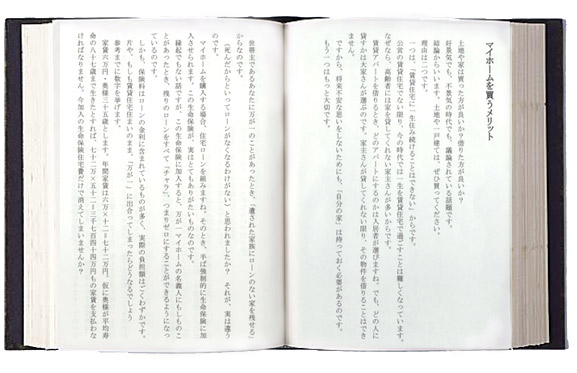 マイホームを買うメリット
土地や家は買った方が良いか？借りた方が良いか？
好景気でも、不景気の時代でも、議論されている話題です。
結論からいいます。土地や一戸建ては、ぜひ買ってください。
理由は二つです。
一つは、「賃貸住宅に一生住み続けることはできない」からです。
公営の賃貸住宅でない限り、今の時代では一生を賃貸住宅で過ごすことは難しくなっています。
なぜなら、高齢者には家を貸してくれない家主さんが多いからです。
賃貸アパートを借りるとき、どのアパートにするのかは入居者が選びますね。でも、どの人に
貸すかは大家さんが選ぶのです。家主さんが貸してくれない限り、その物件を借りることはでき
ません。
ですから、将来不安な思いをしないためにも、「自分の家」は持っておく必要があるのです。
もう一つはもっと大切です。
世帯主であるあなたに万が一のことがあったとき、「遺された家族にローンのない家を残せる」
からなのです。
（死んだからといってローンがなくなるわけがない）と思われましたか？　それが、実は違う
のです。
マイホームを購入する場合、住宅ローンを組みますね。そのとき、半ば強制的に生命保険に加
入させられます。この生命保険が、実はとてもありがたいものなのです。
縁起でもない話ですが、この生命保険に加入すると、万が一マイホームの名義人にもしものこ
とがあったとき、残りのローンをすべて「チャラ」、つまりゼロにすることができるようになっ
ているのです。
しかも、保険料はローンの金利に含まれているものが多く、実際の負担額はごくわずかです。
片や、もしも賃貸住宅住まいのまま、「万が一」に出合ってしまったらどうなるでしょう
参考までに数字を挙げます。
家賃六万円・奥様三十五歳とします。年間家賃は六万×十二＝七十二万円。仮に奥様が平均寿
命の八十七歳まで生きたとすれば、七十二万×五十二＝三千七百四十四万円もの家賃を支払わな
ければなりません。今加入の生命保険住宅費だけで消えてしまいませんか？